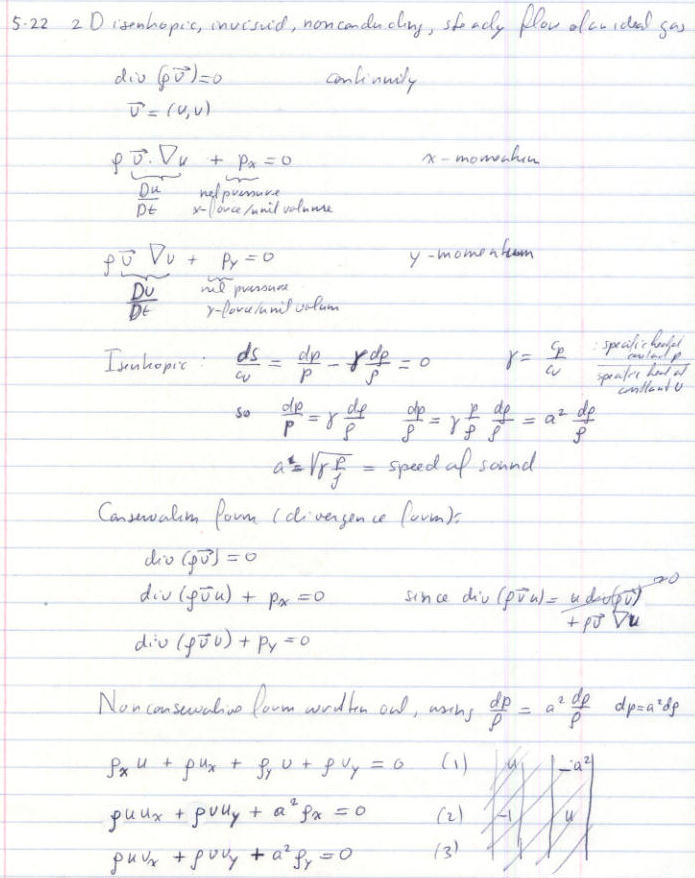 5.22 2D isentropic, inviscid, nonconducting, steady flow of an ideal gas
div (ρv⃗)=0 continuity
v⃗ = (u,v)
ρ v⃗.∇u + p_x = 0 x-momentum
Du/Dt net pressure x-force/unit volume
ρ v⃗ ∇v + p_y = 0 y-momentum
Dv/Dt net pressure y-force/unit volum
Isentropic: ds/c_v = dp/p - γ dρ/ρ = 0 γ = c_p/c_v : specific heat at constant p / specific heat at constant v
so dp/p = γ dρ/ρ dp/ρ = γ p/ρ dρ/ρ = a² dρ/ρ
a = √(γ p/ρ) = speed of sound
Conservation form (divergence form):
div (ρv⃗) = 0
div (ρv⃗u) + p_x = 0 since div (ρv⃗u) = u div(ρv⃗) =0
+ ρv⃗ ∇u
div (ρv⃗v) + p_y = 0
Nonconservative form written out, using dp/ρ = a² dρ/ρ dp=a²dρ
ρ_x u + ρu_x + ρ_y v + ρv_y = 0 (1) u -a²
ρuu_x + ρvu_y + a²ρ_x = 0 (2) -1 u
ρuv_x + ρvv_y + a²ρ_y = 0 (3)